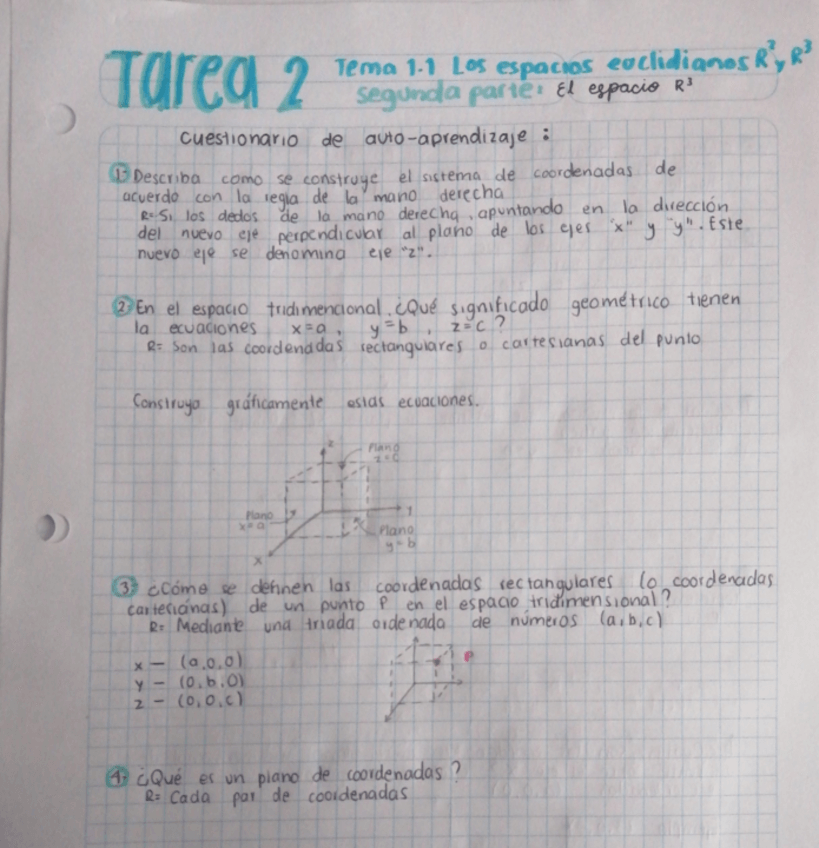 Tarea 2 Tema 1.1 Los espacios euclidianos R², R³
segunda parte: El espacio R³
Cuestionario de auto-aprendizaje:
1: Describa como se construye el sistema de coordenadas de
acuerdo con la regla de la mano derecha
R= Si los dedos de la mano derecha, apuntando en la dirección
del nuevo eje perpendicular al plano de los ejes "x" y "y". Este
nuevo eje se denomina eje "z".
2: En el espacio tridimencional. ¿Qué significado geométrico tienen
la ecuaciones x=a, y=b, z=c?
R= Son las coordenadas rectangulares o cartesianas del punto
Construya gráficamente estas ecuaciones.
z
Plano
z=c
Plano
x=a
y
Plano
y=b
x
3: ¿Cómo se definen las coordenadas rectangulares (o coordenadas
cartesianas) de un punto P en el espacio tridimensional?
R= Mediante una triada ordenada de números (a,b,c)
x — (a,0,0)
P
y — (0,b,0)
z — (0,0,c)
4: ¿Qué es un plano de coordenadas?
R= Cada par de coordenadas